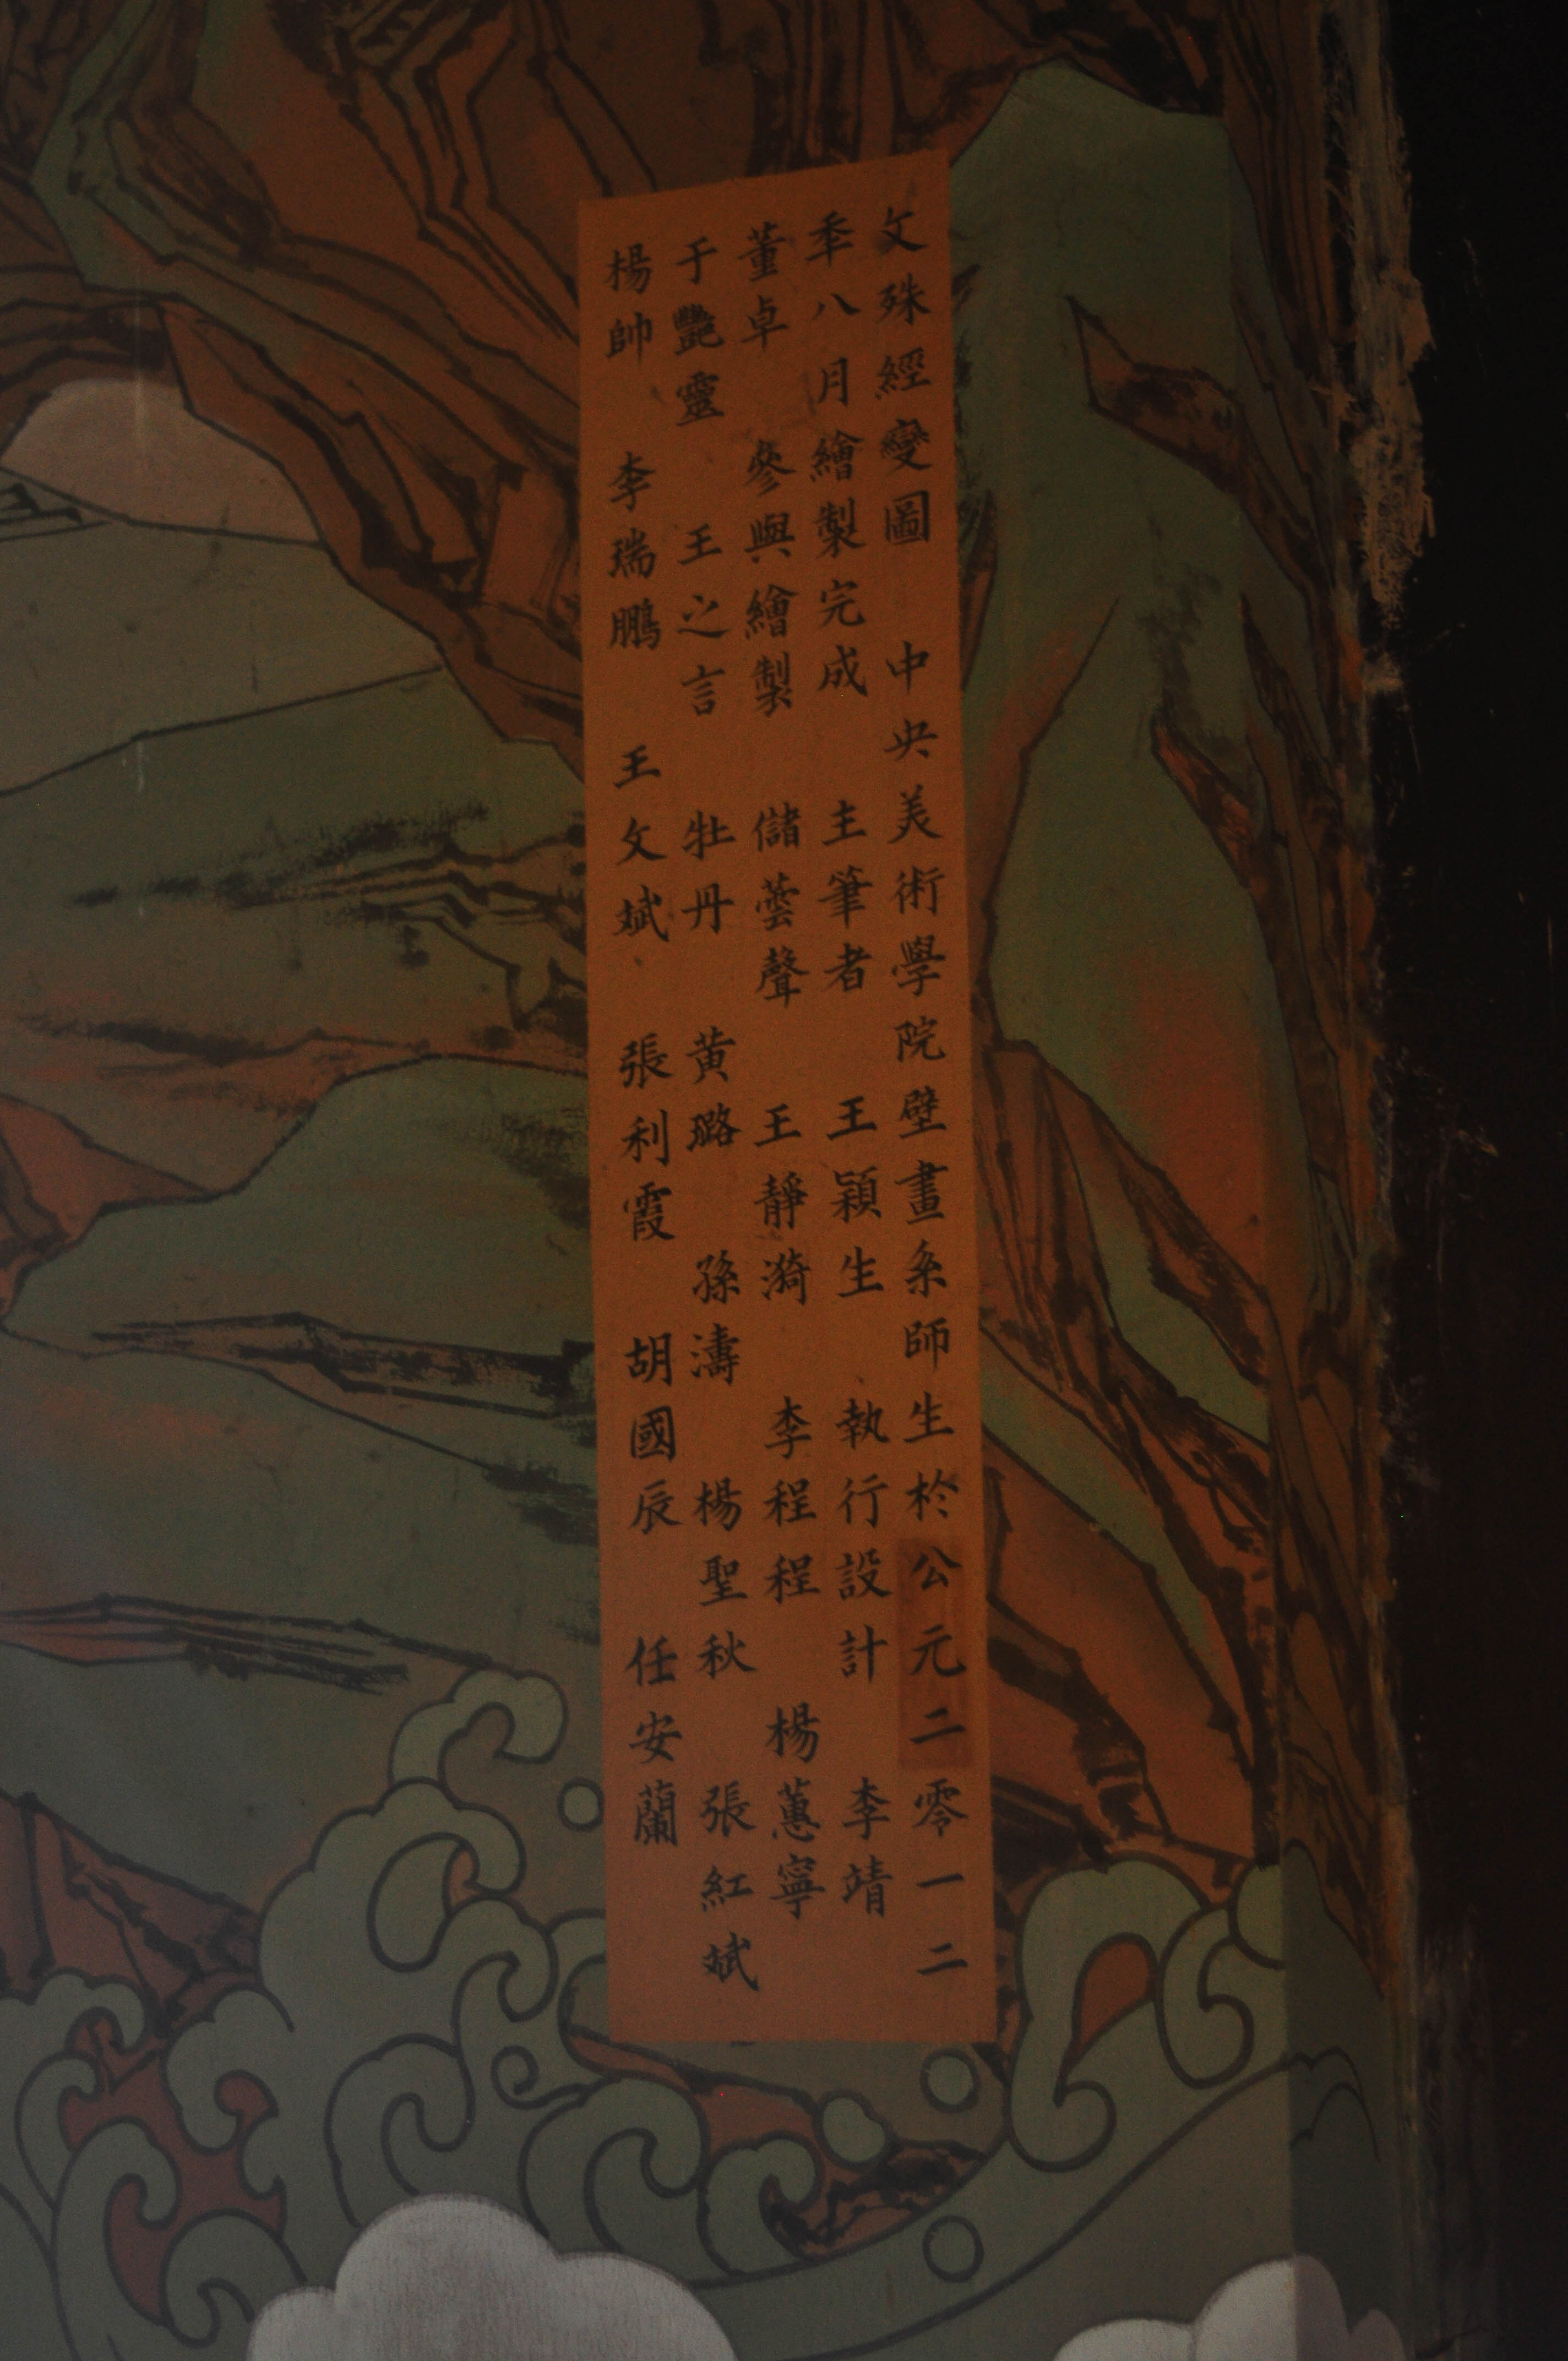 文殊經變圖 中央美術學院壁畫系師生於公元二零一二
秊八月繪製完成 主筆者 王穎生 執行設計 李靖
董卓 參與繪製 儲蕓聲 王靜漪 李程程 楊蕙寧
于艷靈 王之言 牡丹 黃璐 孫濤 楊聖秋 張紅斌
楊帥 李瑞鵬 王文斌 張利霞 胡國辰 任安蘭